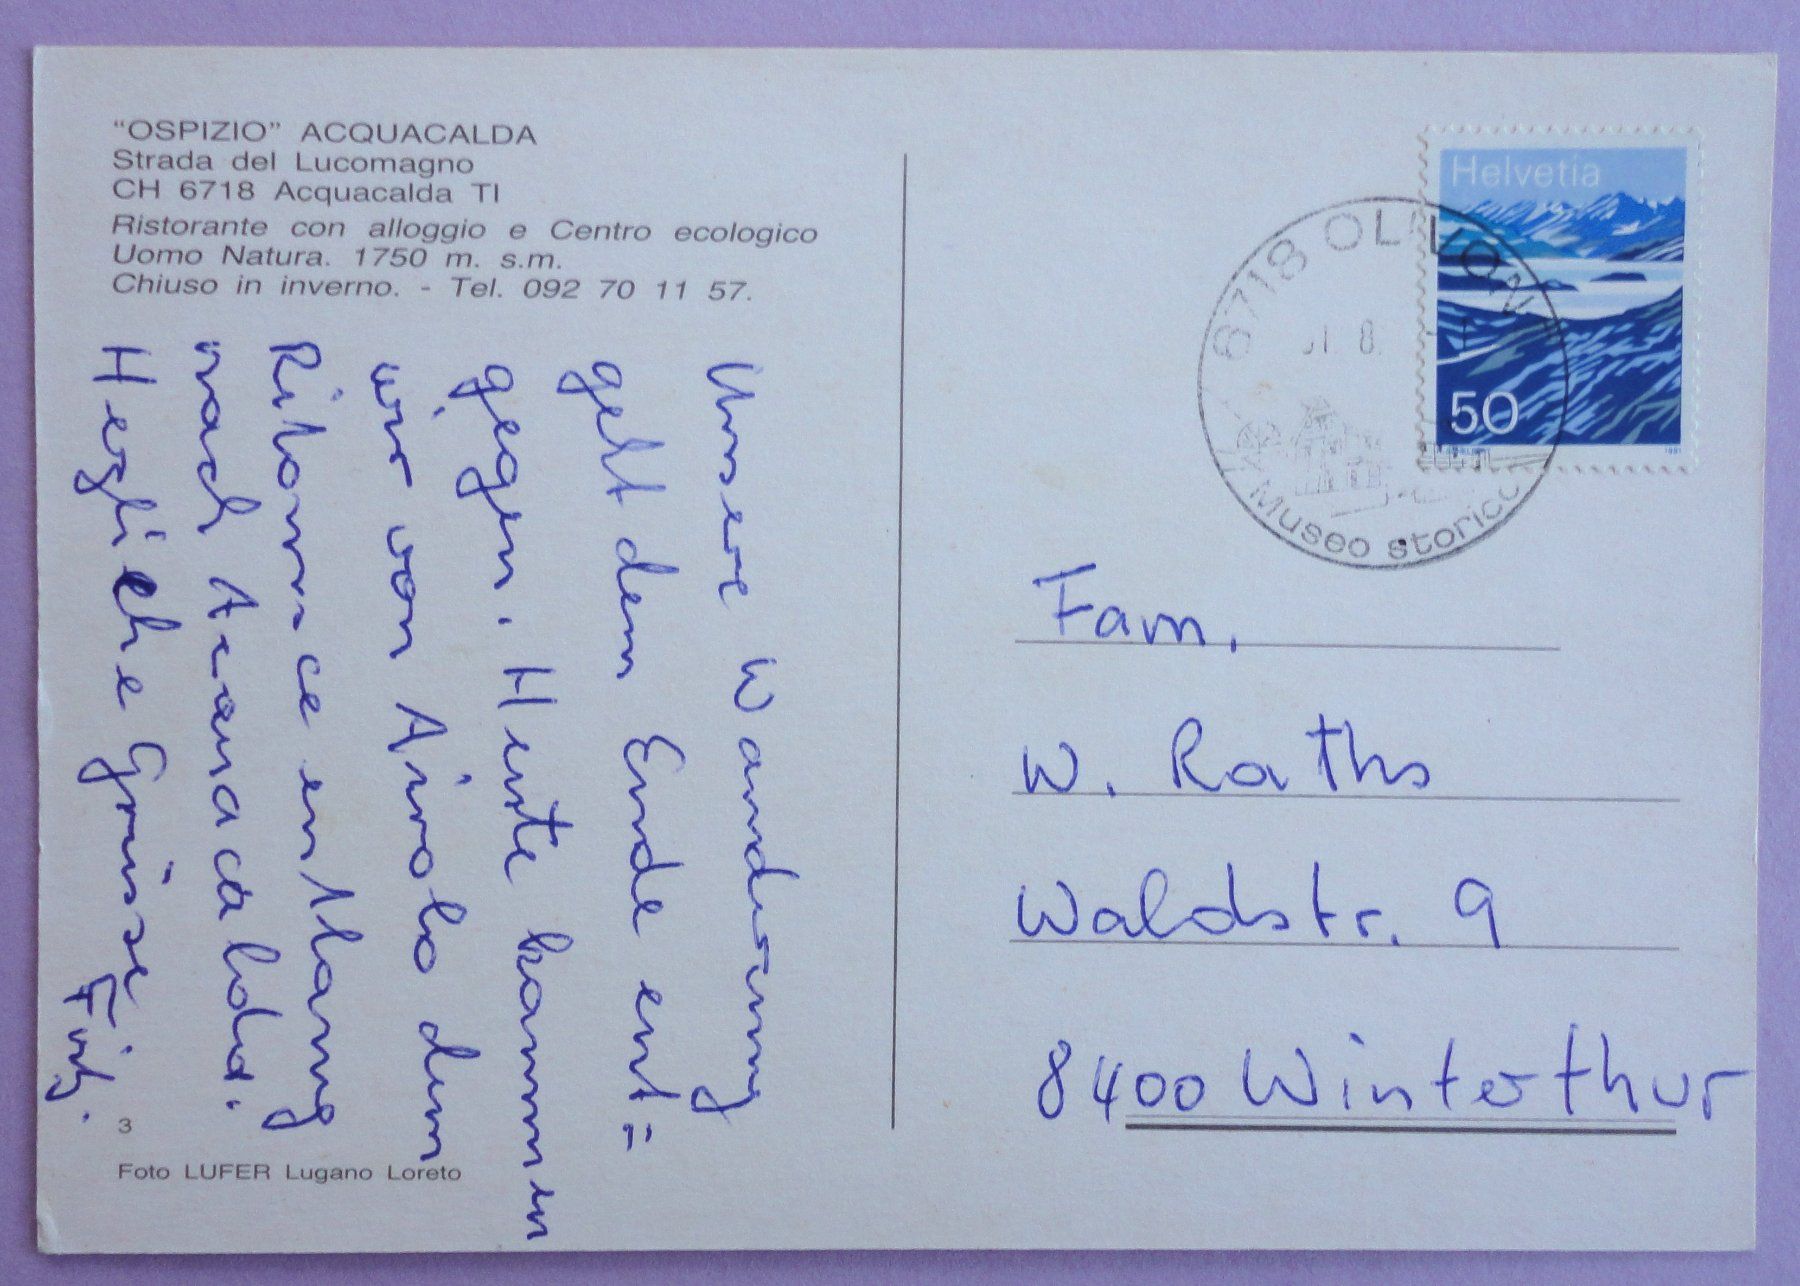 "OSPIZIO" ACQUACALDA
Strada del Lucomagno
CH 6718 Acquacalda TI
Ristorante con alloggio e Centro ecologico
Uomo Natura. 1750 m. s.m.
Chiuso in inverno. - Tel. 092 70 11 57.
Unsere Wanderung
geht dem Ende ent=
gegen. Heute kommen
wir von Airolo dem
Ritomsee entlang
nach Acquacalda.
Herzliche Grüsse
3
Foto LUFER Lugano Loreto
Helvetia
50
1991
6718 OLIVONE
8
Museo storico
Fam.
W. Raths
Waldstr. 9
8400 Winterthur